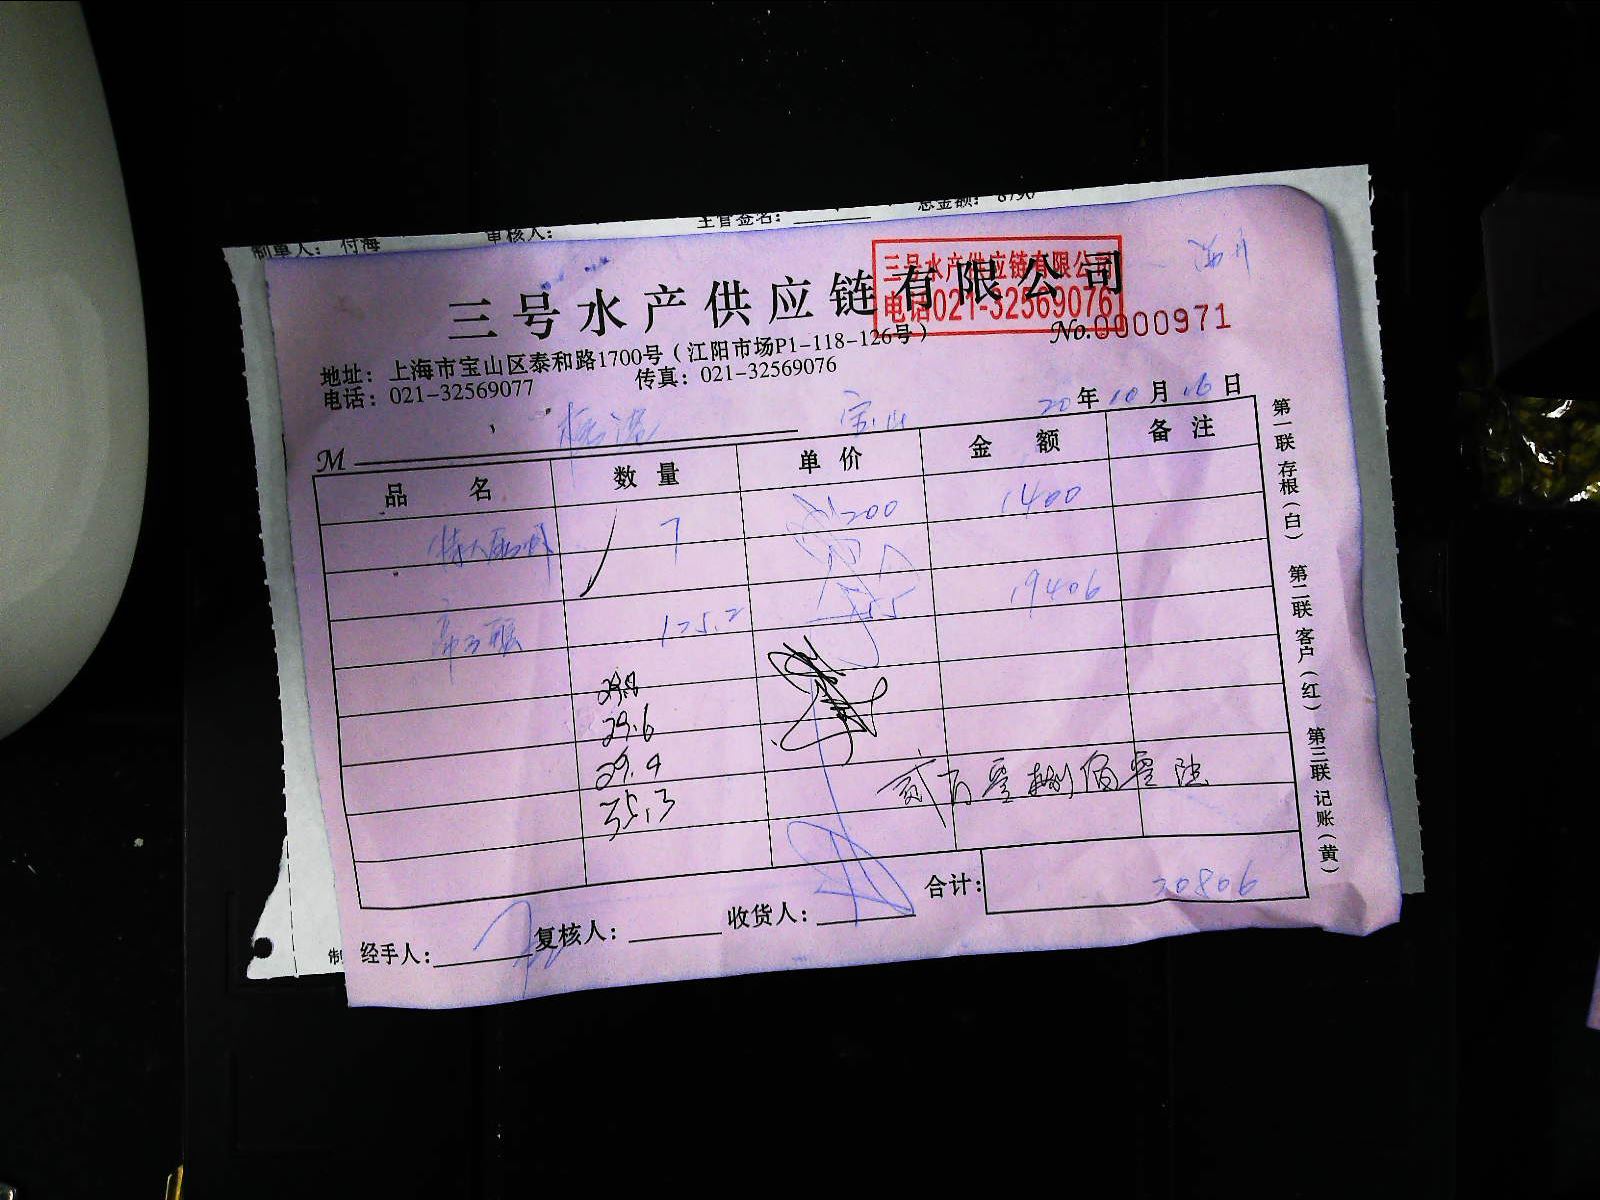 制单人：付海 审核人： 主管签名： 总金额：
三号水产供应链有限公司
三号水产供应链有限公司
电话021-32569076
No.0000971
地址：上海市宝山区泰和路1700号（江阳市场P1-118-126号）
电话：021-32569077 传真：021-32569076
宝山 20年10月16日
M
品名 数量 单价 金额 备注
7 200 1400
125.2 155 19406
29.8
29.6
29.9
35.3
合计：20806
经手人： 复核人： 收货人：
第一联 存根（白） 第二联 客户（红） 第三联 记账（黄）